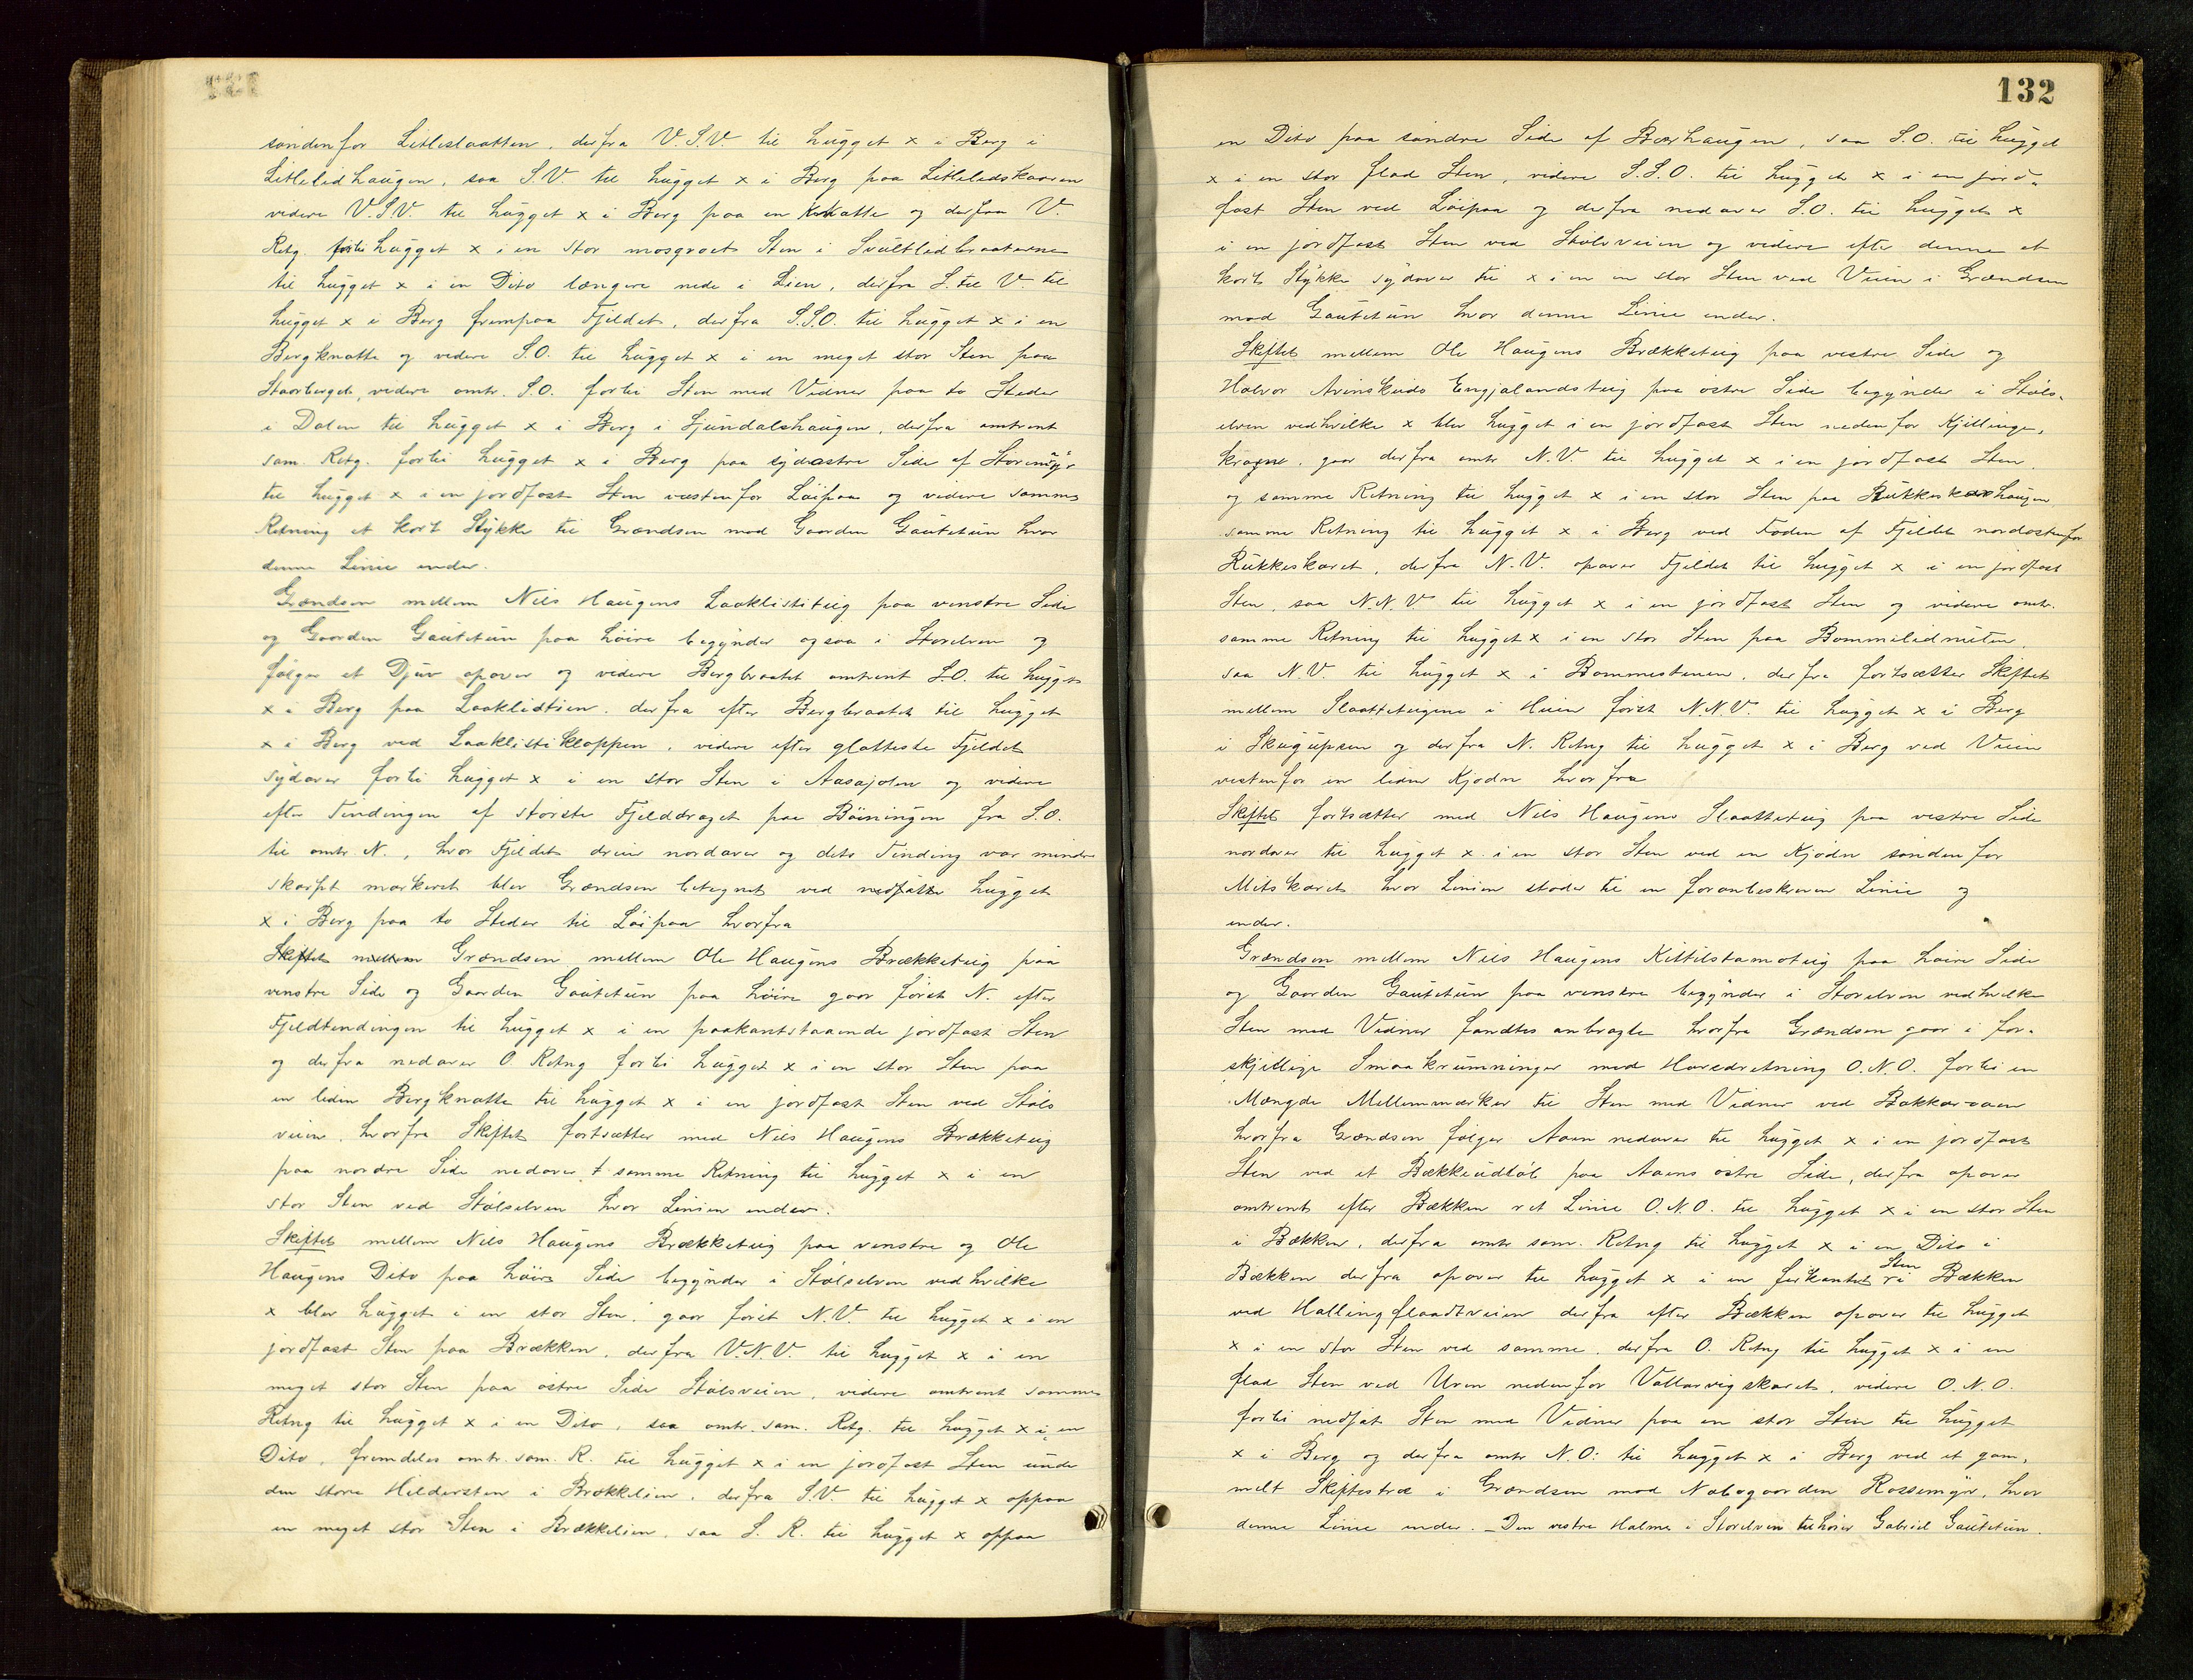 søndenfor Litleslaatten, derfra V.S.V. til hugget x i Berg i
Litlelidhaugen, saa S.V. til hugget x i Berg paa Litlelidskaaren
videre V.S.V. til hugget x i Berg paa en Knatte og derfra V.
Retg. forbi hugget x i en stor mosgroet Sten i Svultlidbraatene
til hugget x i en Dito længere nede i Lien, derfra S. til V. til
hugget x i Berg frempaa Fjeldet, derfra S.S.O. til hugget x i en
Bergknatte og videre S.O. til hugget x i en meget stor Sten paa
Staorberget, videre omtr. S.O. forbi Sten med Vidner paa to Steder
i Dalen til hugget x i Berg i Sjundalshaugen, derfra omtrent
sam. Retg. forbi hugget x i Berg paa sydøstre Side af Storemyr
til hugget x i en jordfast Sten vestenfor Løipaa og videre samme
Retning et kort Stykke til Grændsen mod Gaarden Gautetun hvor
denne Linie ender.
Grændsen mellem Nils Haugens Laaklistiteig paa venstre Side
og Gaarden Gautetun paa høire begynder ogsaa i Storelven og
følger et Djuv opover og videre Bergbraatet omtrent S.O. til hugget
x i Berg paa Laaklistien, derfra efter Bergbraatet til hugget
x i Berg ved Laaklistikloppen, videre efter glatteste Fjeldet
sydover forbi hugget x i en stor Sten i Aasajolen og videre
efter Tindingen af største Fjelddraget paa Bøiningen fra S.O.
til omtr. N., hvor Fjeldet dreier nordover og dets Tinding var mindre
skarpt markeret blev Grændsen betegnet ved nedsatte hugget
x i Berg paa to Steder til Løipaa hvorfra
Skiftet mellem Grændsen mellem Ole Haugens Brækketeig paa
venstre Side og Gaarden Gautetun paa høire gaar først N. efter
Fjeldtindingen til hugget x i en paakantstaaende jordfast Sten
og derfra nedover O. Retng forbi hugget x i en stor Sten paa
en liden Bergknatte til hugget x i en jordfast Sten ved Støls
veien, hvorfra Skiftet fortsætter med Nils Haugens Brækketeig
paa nordre Side nedover t samme Retning til hugget x i en
stor Sten ved Stølselven hvor Linien ender.
Skiftet mellem Nils Haugens Brækketeig paa venstre og Ole
Haugens Dito paa høire Side begynder i Stølselven ved hvilke
x blev hugget i en stor Sten, gaar først N.V. til hugget x i en
jordfast Sten paa Brækken, derfra V.N.V. til hugget x i en
meget stor Sten paa østre Side Stølsveien, videre omtrent samme
Retng til hugget x i en Dito, saa omtr. sam. Retg. til hugget x i en
Dito, fremdeles omtr. sam. R. til hugget x i en jordfast Sten under
den store Hildersten i Brækkelien, derfra S.V. til hugget x oppaa
en meget stor Sten i Brækkelien, saa S. R. til hugget x oppaa
132
en Dito paa søndre Side af Børhaugen, saa S.O. til hugget
x i en stor flad Sten, videre S.S.O. til hugget x i en jord-
fast Sten ved Løipaa og derfra nedover S.O. til hugget x
i en jordfast Sten ved Stølsveien og videre efter denne et
kort Stykke sydover til x i en en stor Sten ved Veien i Grændsen
mod Gautetun hvor denne Linie ender.
Skiftet mellem Ole Haugens Brækketeig paa vestre Side og
Halvor Avinskuds Engjalandsteig paa østre Side begynder i Støls-
elven ved hvilke x blev hugget i en jordfast Sten nedenfor Kjillinge-
kragne, gaar derfra omtr N.V. til hugget x i en jordfast Sten
og samme Retning til hugget x i en stor Sten paa Rukkeskarhaugen
samme Retning til hugget x i Berg ved Foden af Fjeldet nordøstenfor
Rukkeskaret, derfra N.V. opover Fjeldet til hugget x i en jordfast
Sten, saa N.N.V til hugget x i en jordfast Sten og videre omtr.
samme Retning til hugget x i en stor Sten paa Bommelidnuten
saa N.V. til hugget x i Bommestenen, derfra fortsætter Skiftet
mellem Slaatteteigene i Heien først N.N.V. til hugget x i Berg
i Skugupsen og derfra N. Retng til hugget x i Berg ved Veien
vestenfor en liden Kjødn hvorfra
Skiftet fortsætter med Nils Haugens Slaatteteig paa vestre Side
nordover til hugget x i en stor Sten ved en Kjødn søndenfor
Mitskaret hvor Linien støder til en foranbeskreven Linie og
ender.
Grændsen mellem Nils Haugens Kittilstamoteig paa høire Side
og Gaarden Gautetun paa venstre begynder i Storelven ved hvilke
Sten med Vidner fandtes anbragte hvorfra Grændsen gaar i for-
skjellige Smaakrumninger med Hovedretning O.N.O. forbi en
Mængde Mellemmærker til Sten med Vidner ved Bakkar-aaen
hvorfra Grændsen følger Aaen nedover til hugget x i en jordfast
Sten ved et Bækkeudløb paa Aaens østre Side, derfra opover
omtrent efter Bækken ret Linie O.N.O. til hugget x i en stor Sten
i Bækken, derfra omtr sam. Retng til hugget x i en Dito i
Bækken derfra opover til hugget x i en firkantet Sten i Bækken
ved Hallingflaadtveien derfra efter Bækken opover til hugget
x i en stor Sten ved samme, derfra O. Retng til hugget x i en
flad Sten ved Uren nedenfor Vattarvigskaret, videre O.N.O.
forbi nedsat Sten med Vidner paa en stor Sten til hugget
x i Berg og derfra omtr N.O. til hugget x i Berg ved et gam-
melt Skiftestræ i Grændsen mod Nabogaarden Rossemyr, hvor
denne Linie ender. _ Den vestre Halme i Storelven tilhører Gabriel Gautetun.